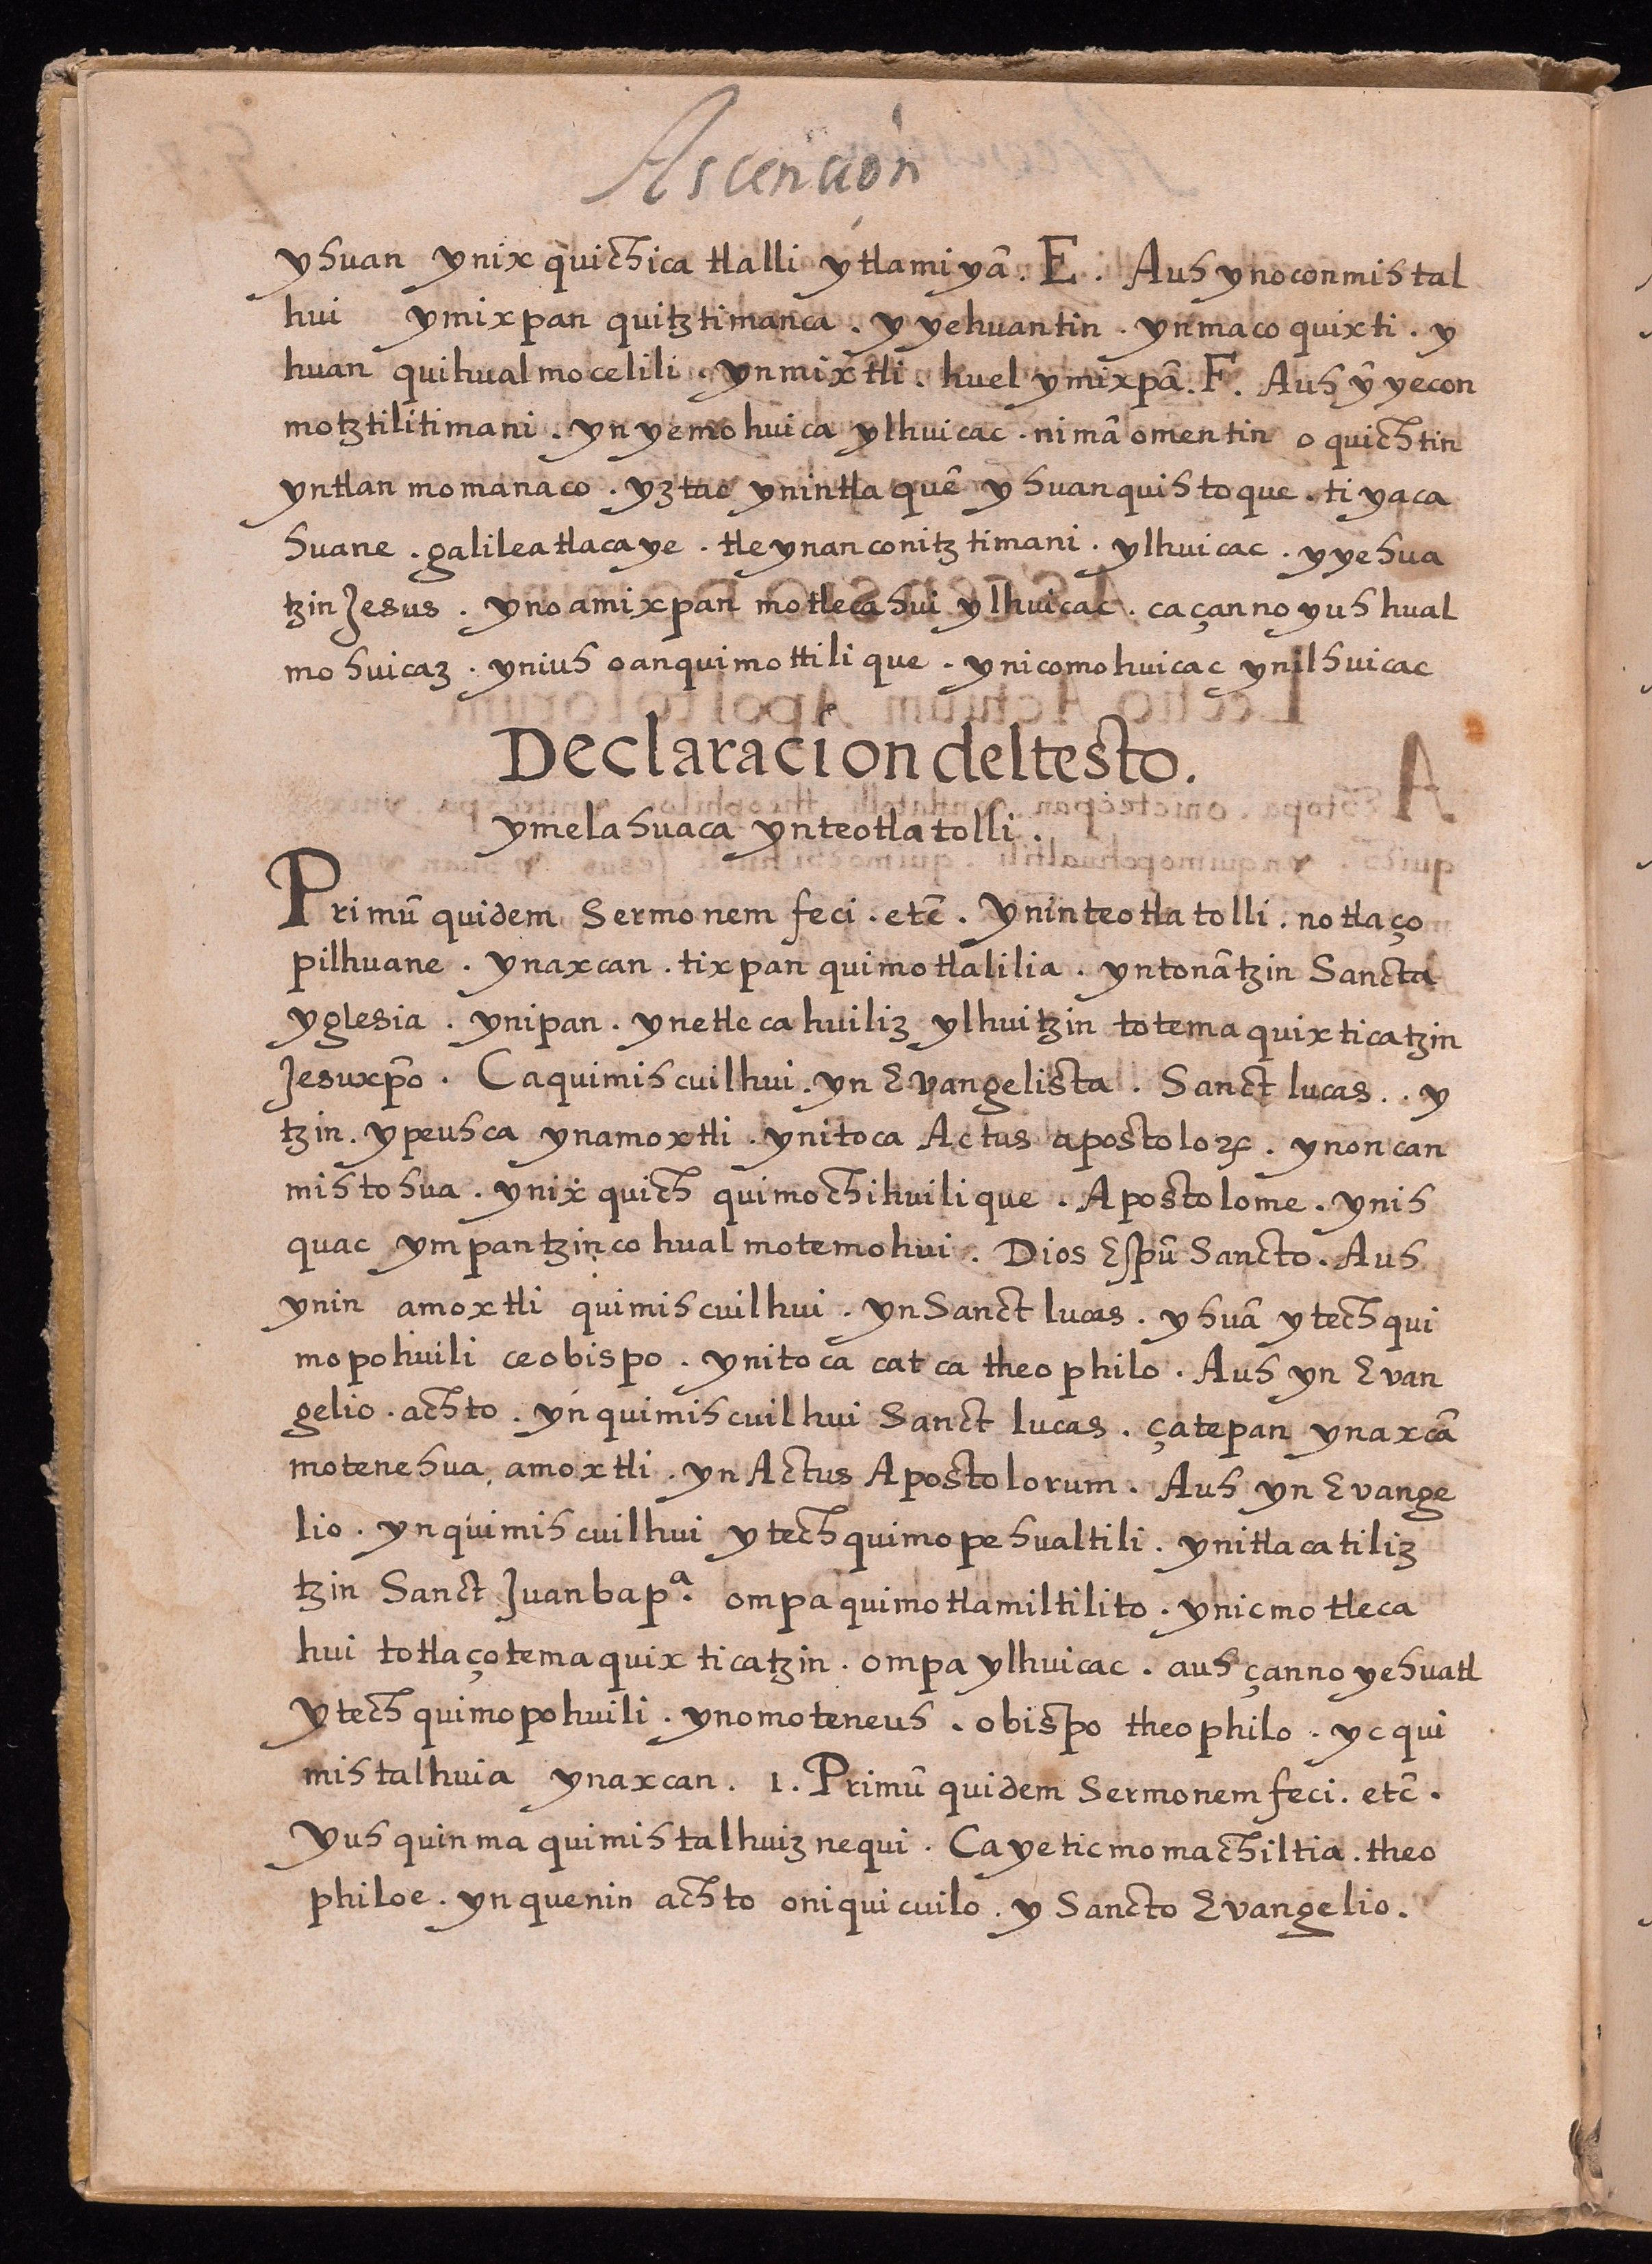 Ascención
yhuan ynixquichica tlalli ytlamiyã. E. Auh ynoconmihtal
hui ymixpan quitztimanca. yyehuantin. ynmacoquixti. y
huan quihualmocelili. ynmixtli. huel ymixpã. F. Auh ỹyecon
motztilitimani. ynyemohuica ylhuicac. nimã omentin oquichtin
yntlan momanaco. yztac ynintlaquẽ yhuanquihtoque. tiyaca
huane. galileatlacaye. tleynanconitztimani. ylhuicac. yyehua
tzin Jesus. ynoamixpan motlecahui ylhuicac. caçannoyuh hual
mohuicaz. yniuh oanquimottilique. ynicomohuicac ynilhuicac
Declaracion deltesto.
ymelahuaca ynteotlatolli.
Primũ quidem Sermonem feci. etc̃. Ynin teotlatolli. notlaço
pilhuane. ynaxcan. tixpan quimotlalilia. yntonãtzin Sancta
yglesia. ynipan. ynetlecahuiliz ylhuitzin totemaquixticatzin
Jesuxp̃o. Caquimihcuilhui. yn Evangelista. Sanct lucas.. y
tzin. ypeuhca ynamoxtli. ynitoca Actus apostoloꝝ. ynoncan
mihtohua. ynixquich quimochihuilique. Apostolome. ynih
quac ympantzinco hualmotemohui. Dios Espũ Sancto. Auh
ynin amoxtli quimihcuilhui. ynSanct lucas. yhuã ytechqui
mopohuili ceobispo. ynitoca catca theophilo. Auh yn Evan
gelio. achto. ynquimihcuilhui Sanct lucas. çatepan ynaxcã
motenehua, amoxtli. yn Actus Apostolorum. Auh yn Evange
lio. ynquimihcuilhui ytechquimopehualtili. ynitlacatiliz
tzin Sanct Juan bapᵃ. ompaquimotlamiltilito. ynicmotleca
hui totlaçotemaquixticatzin. ompa ylhuicac. auh çanno yehuatl
ytechquimopohuili. ynomoteneuh. obispo theophilo. ycqui
mihtalhuia ynaxcan. 1. Primũ quidem Sermonem feci. etc̃.
Yuhquinma quimihtalhuiznequi. Cayeticmomachiltia. theo
philoe. ynquenin achto oniquicuilo. y Sancto Evangelio.